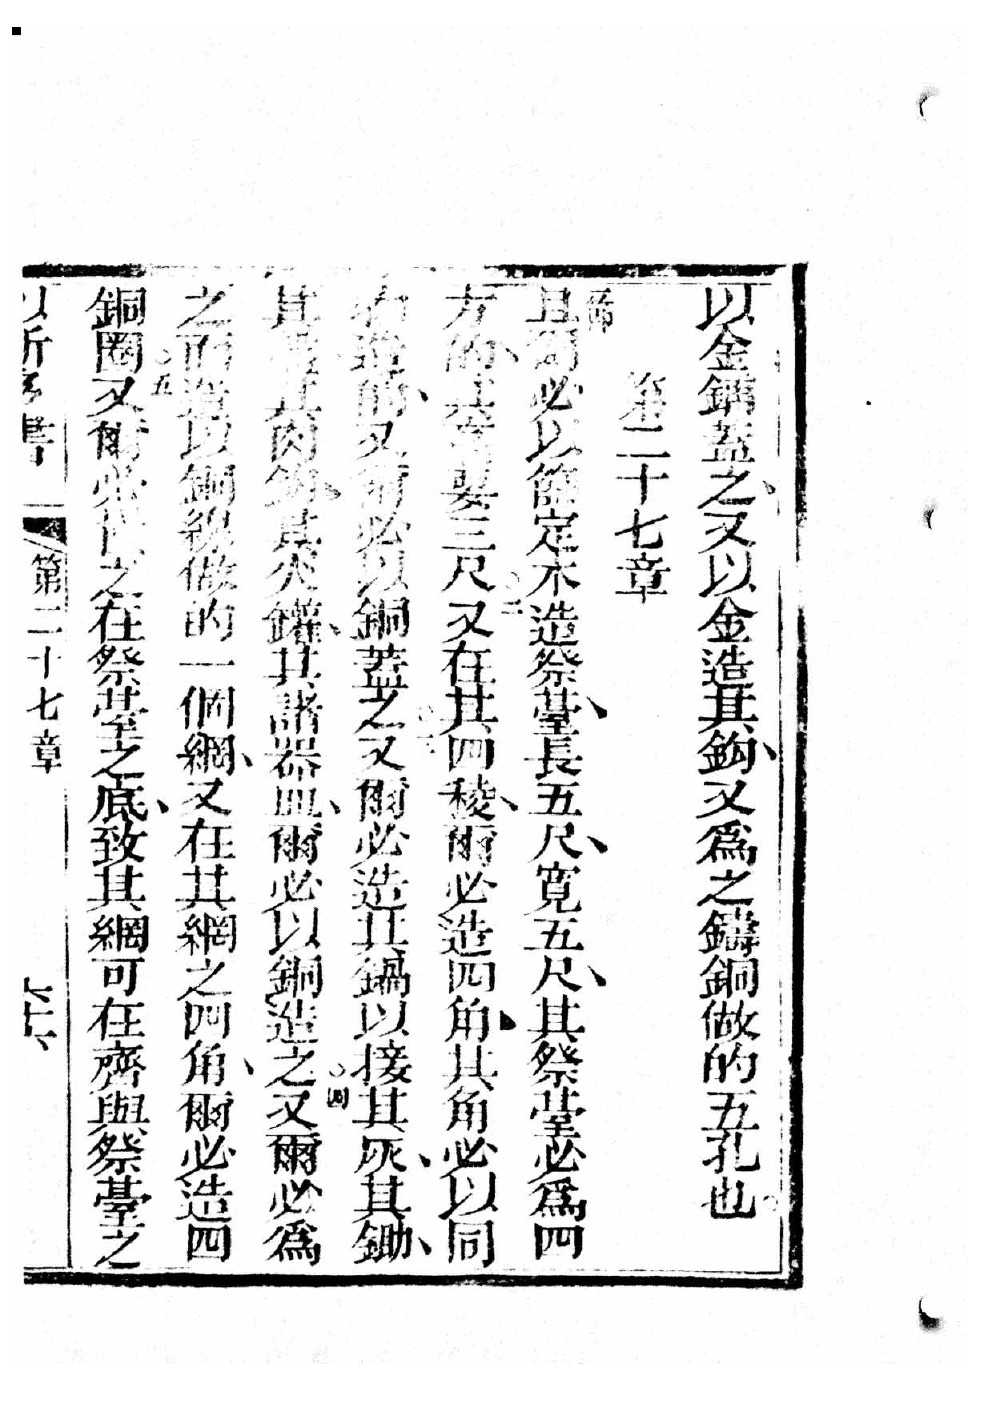 以金鑄蓋之、又以金造其鈎、又爲之鑄銅做的五孔也。
第二十七章
且爾必以篩定木造祭臺、長五尺、寬五尺、其祭臺必爲四
方的、其高要三尺○二又在其四稜、爾必造四角、其角必以同
造的、又爾必以銅蓋之○三又爾必造其鍋以接其灰、其鋤、
其 其肉鈎、其火鑵、其諸器皿、爾必以銅造之○四又爾必爲
之而造以銅線做的一個網、又在其網之四角、爾必造四
銅圈○五又爾必 之在祭臺之底、致其網可在齊與祭臺之
第二十七章